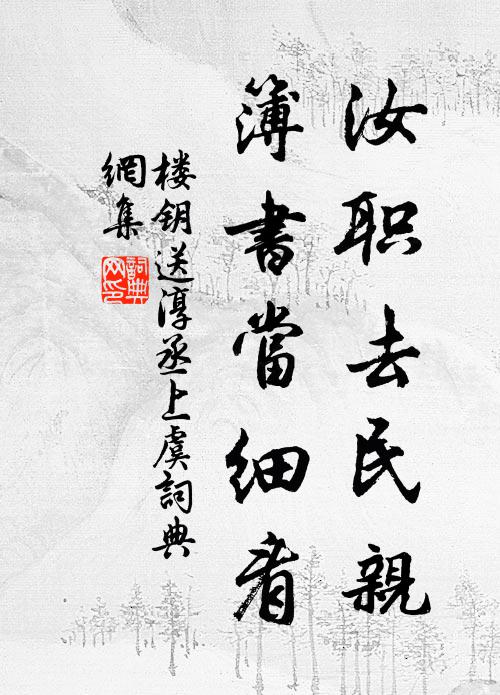 汝职去民親
簿書當细看
楼钥送淳丞上虞詞典
網集
詞典
网印